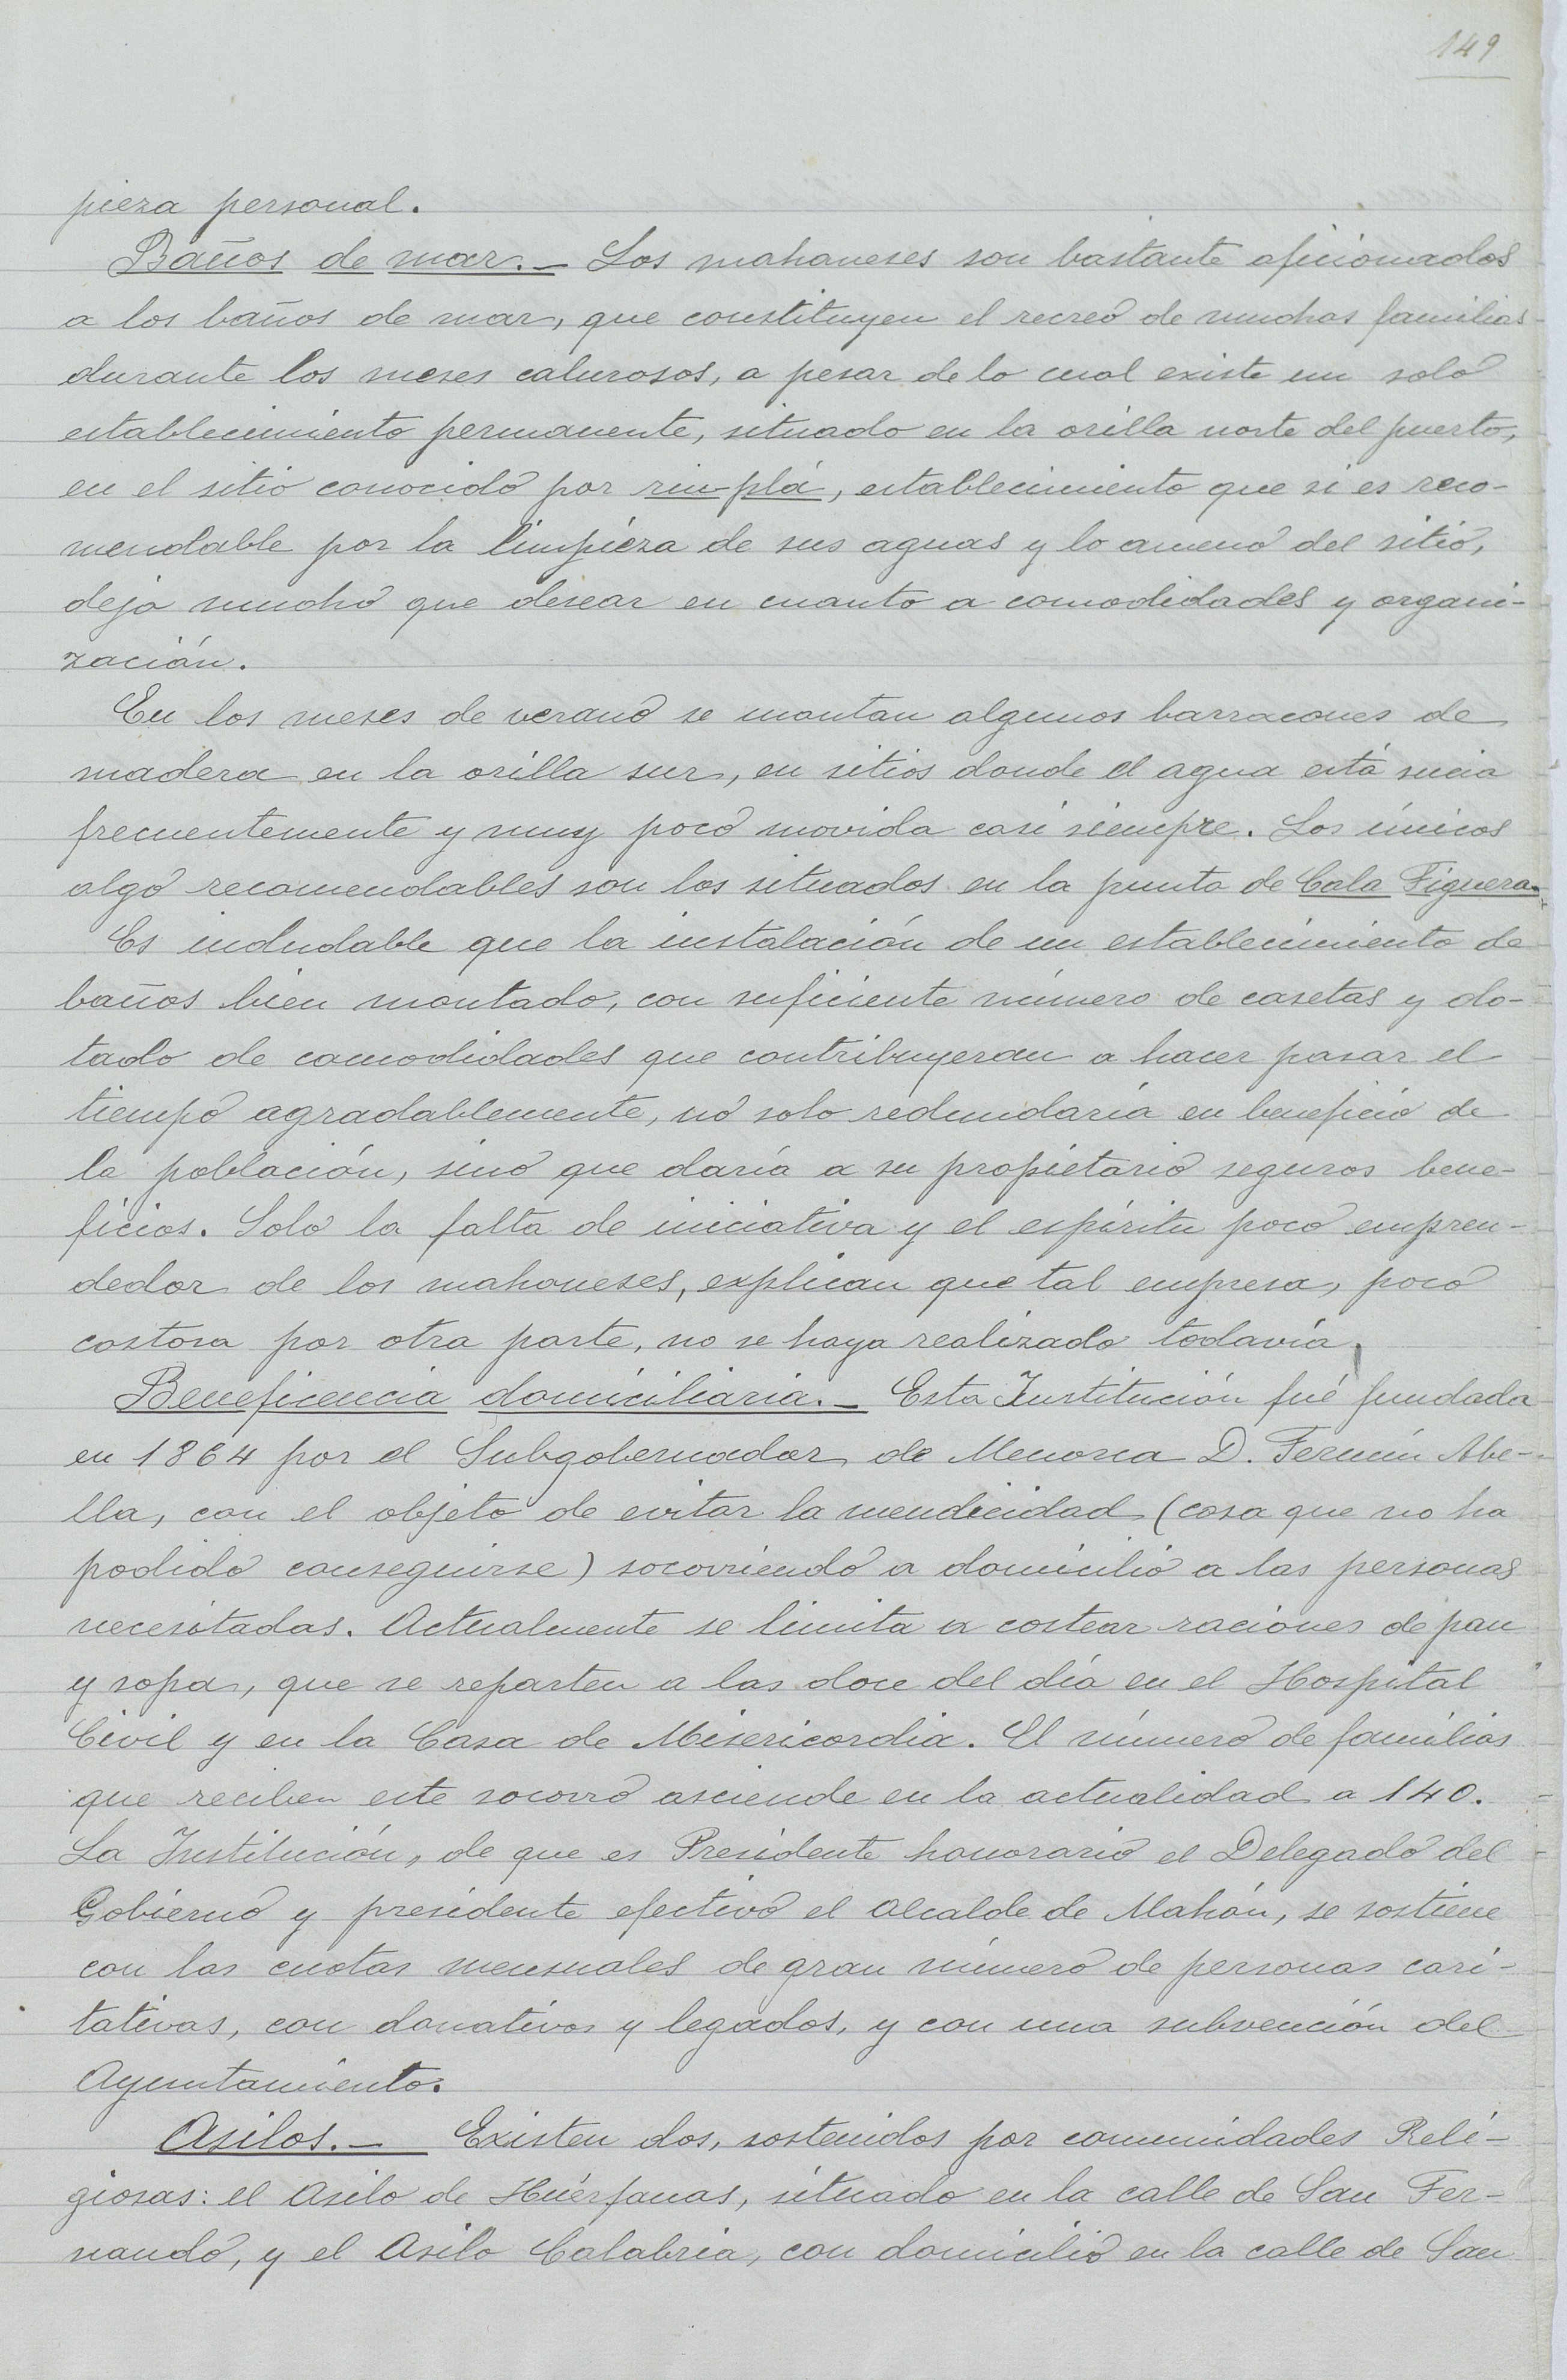 149
pieza personal.
Baños de mar.— Los mahoneses son bastante aficionados
a los baños de mar, que constituyen el recreo de muchas familias
durante los meses calurosos, a pesar de lo cual existe un solo
establecimiento permanente, situado en la orilla norte del puerto,
en el sitio conocido por riu-plá, establecimiento que si es reco-
mendable por la limpieza de sus aguas y lo ameno del sitio,
deja mucho que desear en cuanto a comodidades y organi-
zación.
En los meses de verano se montan algunos barracones de
madera en la orilla sur, en sitios donde el agua está sucia
frecuentemente y muy poco movida casi siempre. Los únicos
algo recomendables son los situados en la punta de Cala Figuera.
Es indudable que la instalación de un establecimiento de
baños bien montado, con suficiente número de casetas y do-
tado de comodidades que contribuyeran a hacer pasar el
tiempo agradablemente, no solo redundaría en beneficio de
la población, sino que daría a su propietario seguros bene-
ficios. Solo la falta de iniciativa y el espíritu poco empren-
dedor de los mahoneses, explican que tal empresa, poco
costosa por otra parte, no se haya realizado todavía.
Beneficencia domiciliaria.— Esta Institución fué fundada
en 1864 por el Subgobernador de Menorca D. Fermín Abe-
lla, con el objeto de evitar la mendicidad (cosa que no ha
podido conseguirse) socorriendo a domicilio a las personas
necesitadas. Actualmente se limita a costear raciones de pan
y sopa, que se reparten a las doce del día en el Hospital
Civil y en la Casa de Misericordia. El número de familias
que reciben este socorro asciende en la actualidad a 140.
La Institución, de que es Presidente honorario el Delegado del
Gobierno y presidente efectivo el Alcalde de Mahón, se sostiene
con las cuotas mensuales de gran número de personas cari-
tativas, con donativos y legados, y con una subvención del
Ayuntamiento.
Asilos.— Existen dos, sostenidos por comunidades Reli-
giosas: el Asilo de Huérfanas, situado en la calle de San Fer-
nando, y el Asilo Calabria, con domicilio en la calle de San